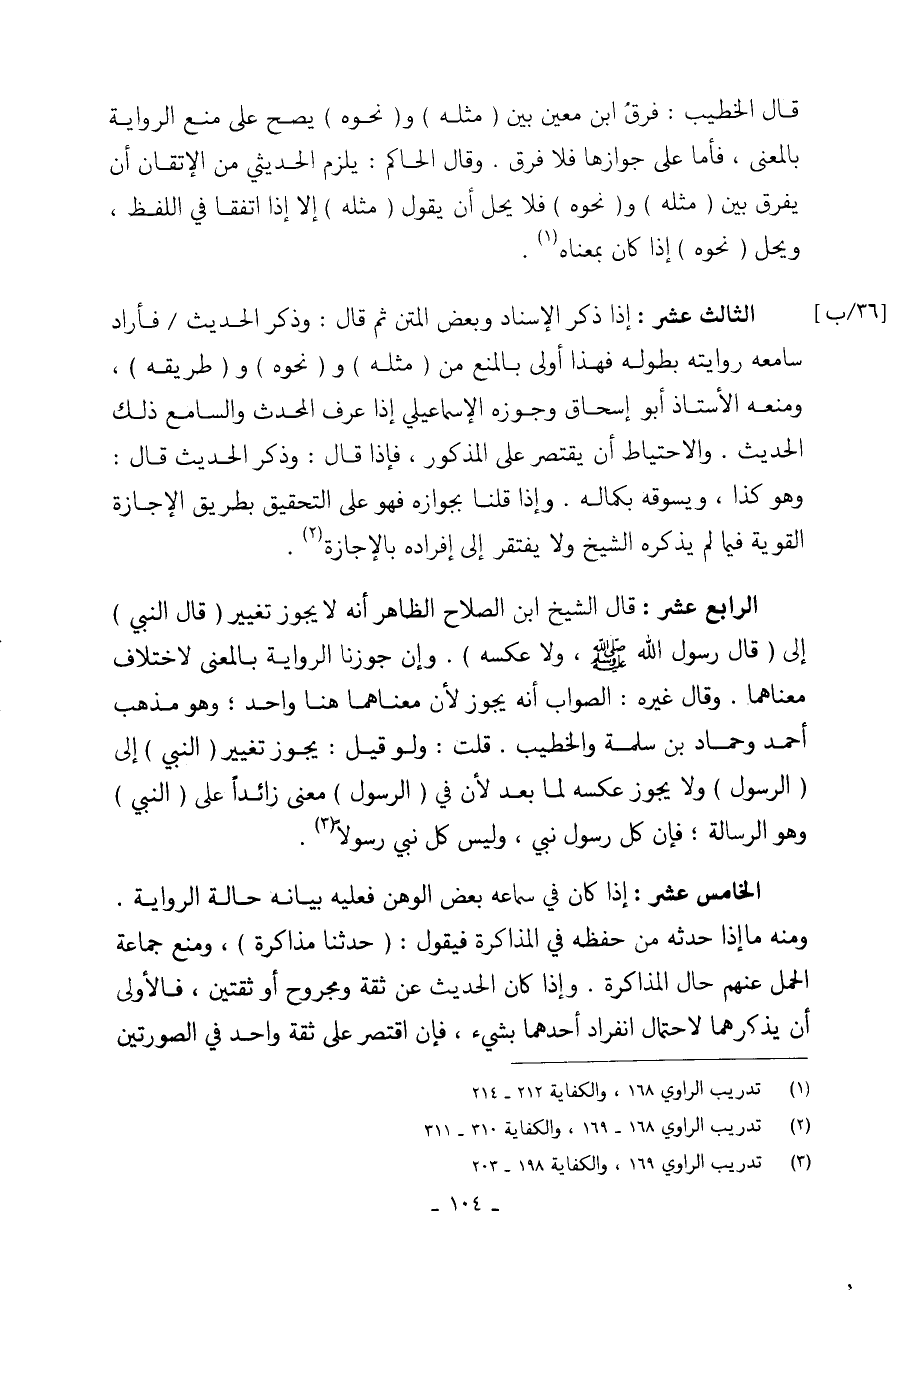 قال الخطيب : فرقُ ابن معين بين ( مثله ) و( نحوه ) يصح على منع الرواية
بالمعنى ، فأما على جوازها فلا فرق . وقال الحاكم : يلزم الحديثي من الإتقان أن
يفرق بين ( مثله ) و( نحوه ) فلا يحل أن يقول ( مثله ) إلا إذا اتفقا في اللفظ ،
ويحل ( نحوه ) إذا كان بمعناه(١) .
[٣٦/ب] الثالث عشر : إذا ذكر الإسناد وبعض المتن ثم قال : وذكر الحديث / فأراد
سامعه روايته بطوله فهذا أولى بالمنع من ( مثله ) و ( نحوه ) و ( طريقه ) ،
ومنعه الأستاذ أبو إسحاق وجوزه الإسماعيلي إذا عرف المحدث والسامع ذلك
الحديث . والاحتياط أن يقتصر على المذكور ، فإذا قال : وذكر الحديث قال :
وهو كذا ، ويسوقه بكماله . وإذا قلنا بجوازه فهو على التحقيق بطريق الإجازة
القوية فيما لم يذكره الشيخ ولا يفتقر إلى إفراده بالإجازة(٢) .
الرابع عشر : قال الشيخ ابن الصلاح الظاهر أنه لا يجوز تغيير ( قال النبي )
إلى ( قال رسول الله ﷺ ، ولا عكسه ) . وإن جوزنا الرواية بالمعنى لاختلاف
معناهما . وقال غيره : الصواب أنه يجوز لأن معناهما هنا واحد ؛ وهو مذهب
أحمد وحماد بن سلمة والخطيب . قلت : ولو قيل : يجوز تغيير ( النبي ) إلى
( الرسول ) ولا يجوز عكسه لما بعد لأن في ( الرسول ) معنى زائداً على ( النبي )
وهو الرسالة ؛ فإن كل رسول نبي ، وليس كل نبي رسولاً(٣) .
الخامس عشر : إذا كان في سماعه بعض الوهن فعليه بيانه حالة الرواية .
ومنه ماإذا حدثه من حفظه في المذاكرة فيقول : ( حدثنا مذاكرة ) ، ومنع جماعة
الحمل عنهم حال المذاكرة . وإذا كان الحديث عن ثقة ومجروح أو ثقتين ، فالأولى
أن يذكرهما لاحتمال انفراد أحدهما بشيء ، فإن اقتصر على ثقة واحد في الصورتين
(١) تدريب الراوي ١٦٨ ، والكفاية ٢١٢ ـ ٢١٤
(٢) تدريب الراوي ١٦٨ ـ ١٦٩ ، والكفاية ٣١٠ ـ ٣١١
(٣) تدريب الراوي ١٦٩ ، والكفاية ١٩٨ ـ ٢٠٣
ـ ١٠٤ ـ